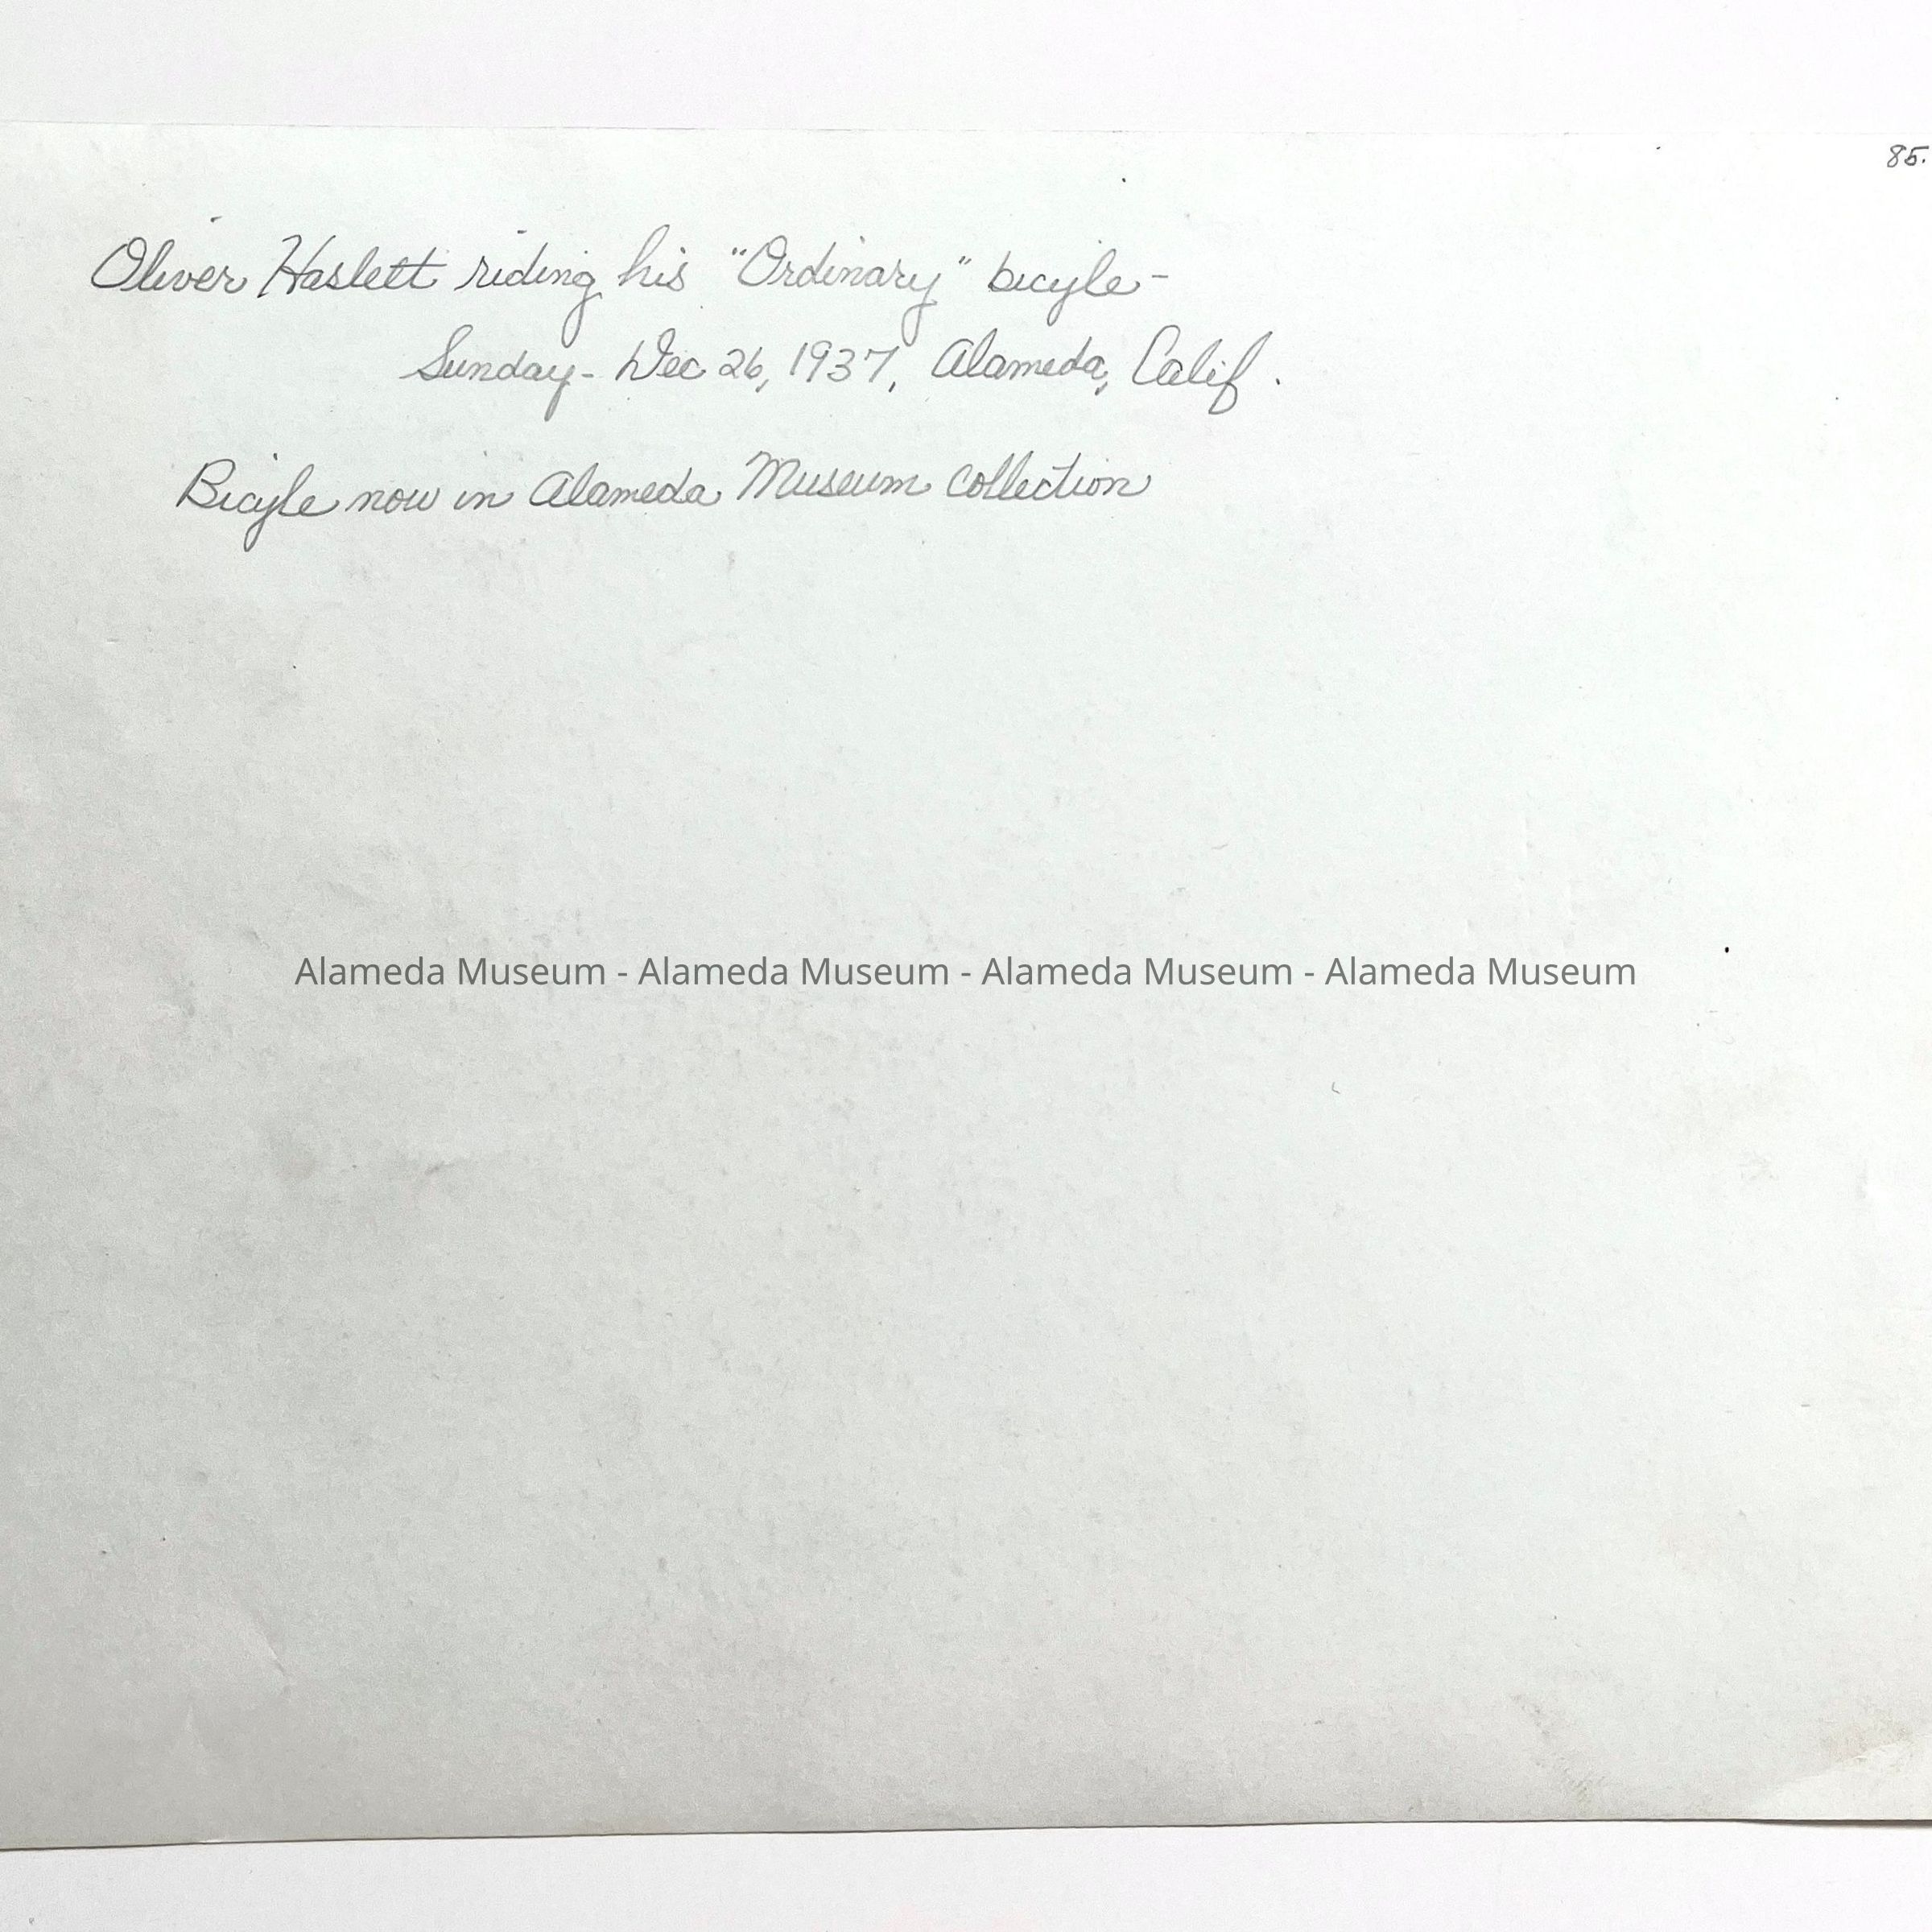 85.
Oliver Haslett riding his "Ordinary" bicycle-
Sunday- Dec 26, 1937, Alameda, Calif.
Bicycle now in Alameda Museum Collection
Alameda Museum - Alameda Museum - Alameda Museum - Alameda Museum